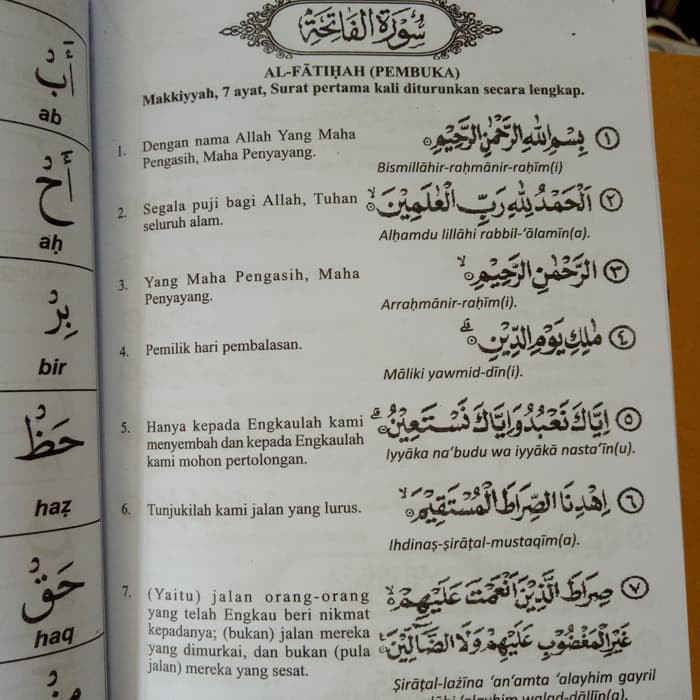 أَبْ
ab
أَحْ
aḥ
بِرْ
bir
حَظْ
haẓ
حَقْ
haq
سُوْرَةُ الْفَاتِحَةِ
AL-FĀTIḤAH (PEMBUKA)
Makkiyyah, 7 ayat, Surat pertama kali diturunkan secara lengkap.
1. Dengan nama Allah Yang Maha
Pengasih, Maha Penyayang.
بِسْمِ اللهِ الرَّحْمٰنِ الرَّحِيْمِ ١
Bismillāhir-raḥmānir-raḥīm(i)
2. Segala puji bagi Allah, Tuhan
seluruh alam.
اَلْحَمْدُ لِلّٰهِ رَبِّ الْعٰلَمِيْنَۙ ٢
Alḥamdu lillāhi rabbil-‘ālamīn(a).
3. Yang Maha Pengasih, Maha
Penyayang.
الرَّحْمٰنِ الرَّحِيْمِۙ ٣
Arraḥmānir-raḥīm(i).
4. Pemilik hari pembalasan.
مٰلِكِ يَوْمِ الدِّيْنِۗ ٤
Māliki yawmid-dīn(i).
5. Hanya kepada Engkaulah kami
menyembah dan kepada Engkaulah
kami mohon pertolongan.
اِيَّاكَ نَعْبُدُ وَاِيَّاكَ نَسْتَعِيْنُۗ ٥
Iyyāka na’budu wa iyyākā nasta’īn(u).
6. Tunjukilah kami jalan yang lurus.
اِهْدِنَا الصِّرَاطَ الْمُسْتَقِيْمَۙ ٦
Ihdinaṣ-ṣirāṭal-mustaqīm(a).
7. (Yaitu) jalan orang-orang
yang telah Engkau beri nikmat
kepadanya; (bukan) jalan mereka
yang dimurkai, dan bukan (pula
jalan) mereka yang sesat.
صِرَاطَ الَّذِيْنَ اَنْعَمْتَ عَلَيْهِمْۙ ٧
غَيْرِ الْمَغْضُوْبِ عَلَيْهِمْ وَلَا الضَّاۤلِّيْنَ
Ṣirāṭal-lażīna ‘an‘amta ‘alayhim gayril
‘alayhim walad-dāllīn(a)